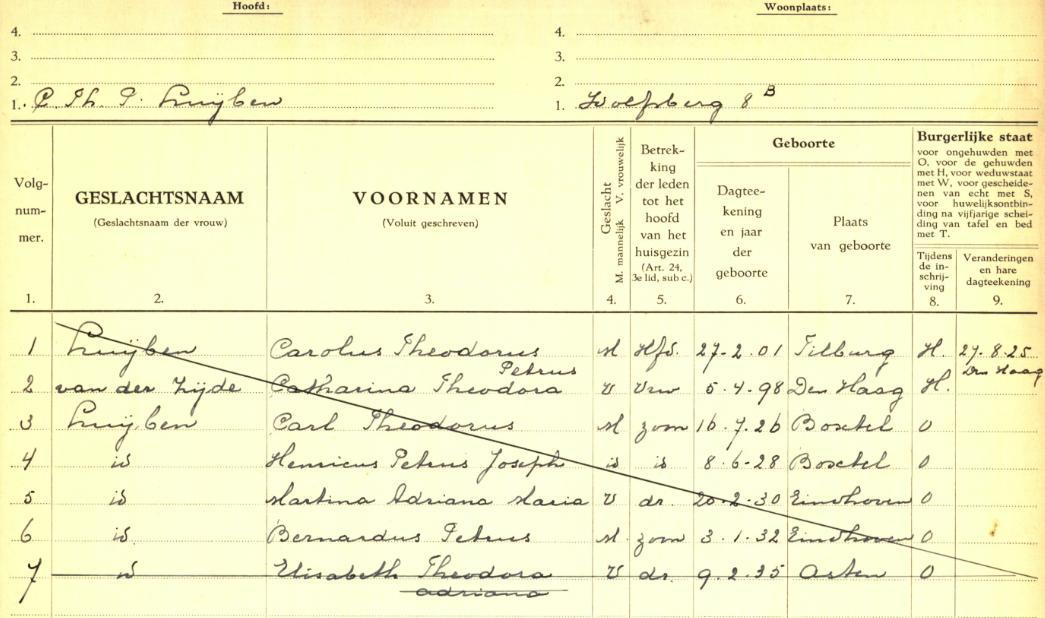 Hoofd: Woonplaats:
4. 4.
3. 3.
2. 2.
1. C. Th. P. Luijben 1. Wolfsberg 8 B
Volgnummer. GESLACHTSNAAM (Geslachtsnaam der vrouw) VOORNAMEN (Voluit geschreven) Geslacht M. mannelijk V. vrouwelijk Betrekking der leden tot het hoofd van het huisgezin (Art. 24, 3e lid, sub c.) Geboorte Dagteekening en jaar der geboorte Plaats van geboorte Burgerlijke staat
voor ongehuwden met
O, voor de gehuwden
met H, voor weduwstaat
met W, voor gescheidenen van echt met S,
voor huwelijksontbinding na vijfjarige scheiding van tafel en bed
met T.
Tijdens de inschrijving Veranderingen en hare dagteekening
1. 2. 3. 4. 5. 6. 7. 8. 9.
1 Luijben Carolus Theodorus Petrus M Hfd. 27-2-01 Tilburg H. 27-8-25 Den Haag
2 van der Zijde Catharina Theodora V Vrw 5-4-98 Den Haag H.
3 Luijben Carl Theodorus M zoon 16-7-26 Boxtel O
4 id Henricus Petrus Joseph id is 8-6-28 Boxtel O
5 id Martina Adriana Maria V dr. 20-2-30 Eindhoven O
6 id. Bernardus Petrus M. zoon 3-1-32 Eindhoven O
7 id Elisabeth Theodora adriana V dr. 9-2-35 Asten O